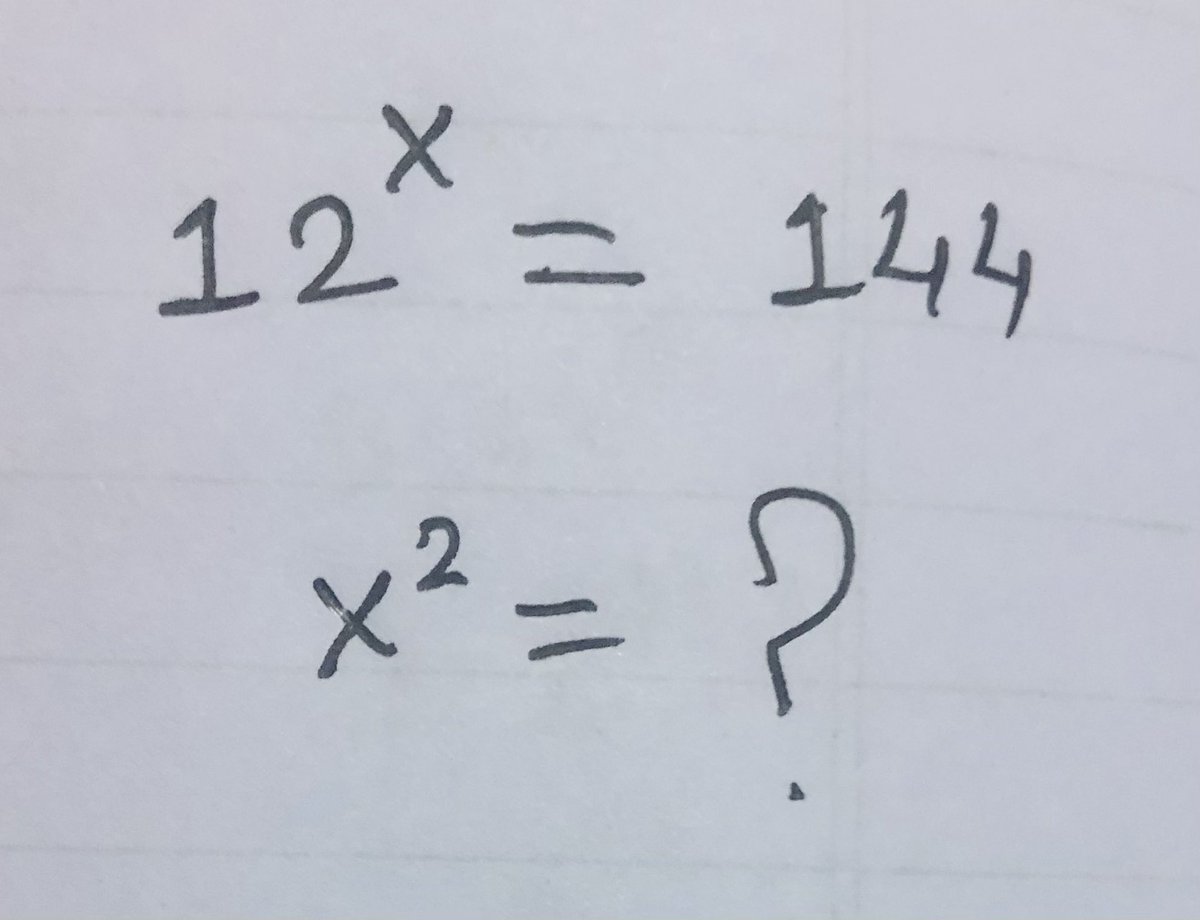 12^x = 144
x² = ?